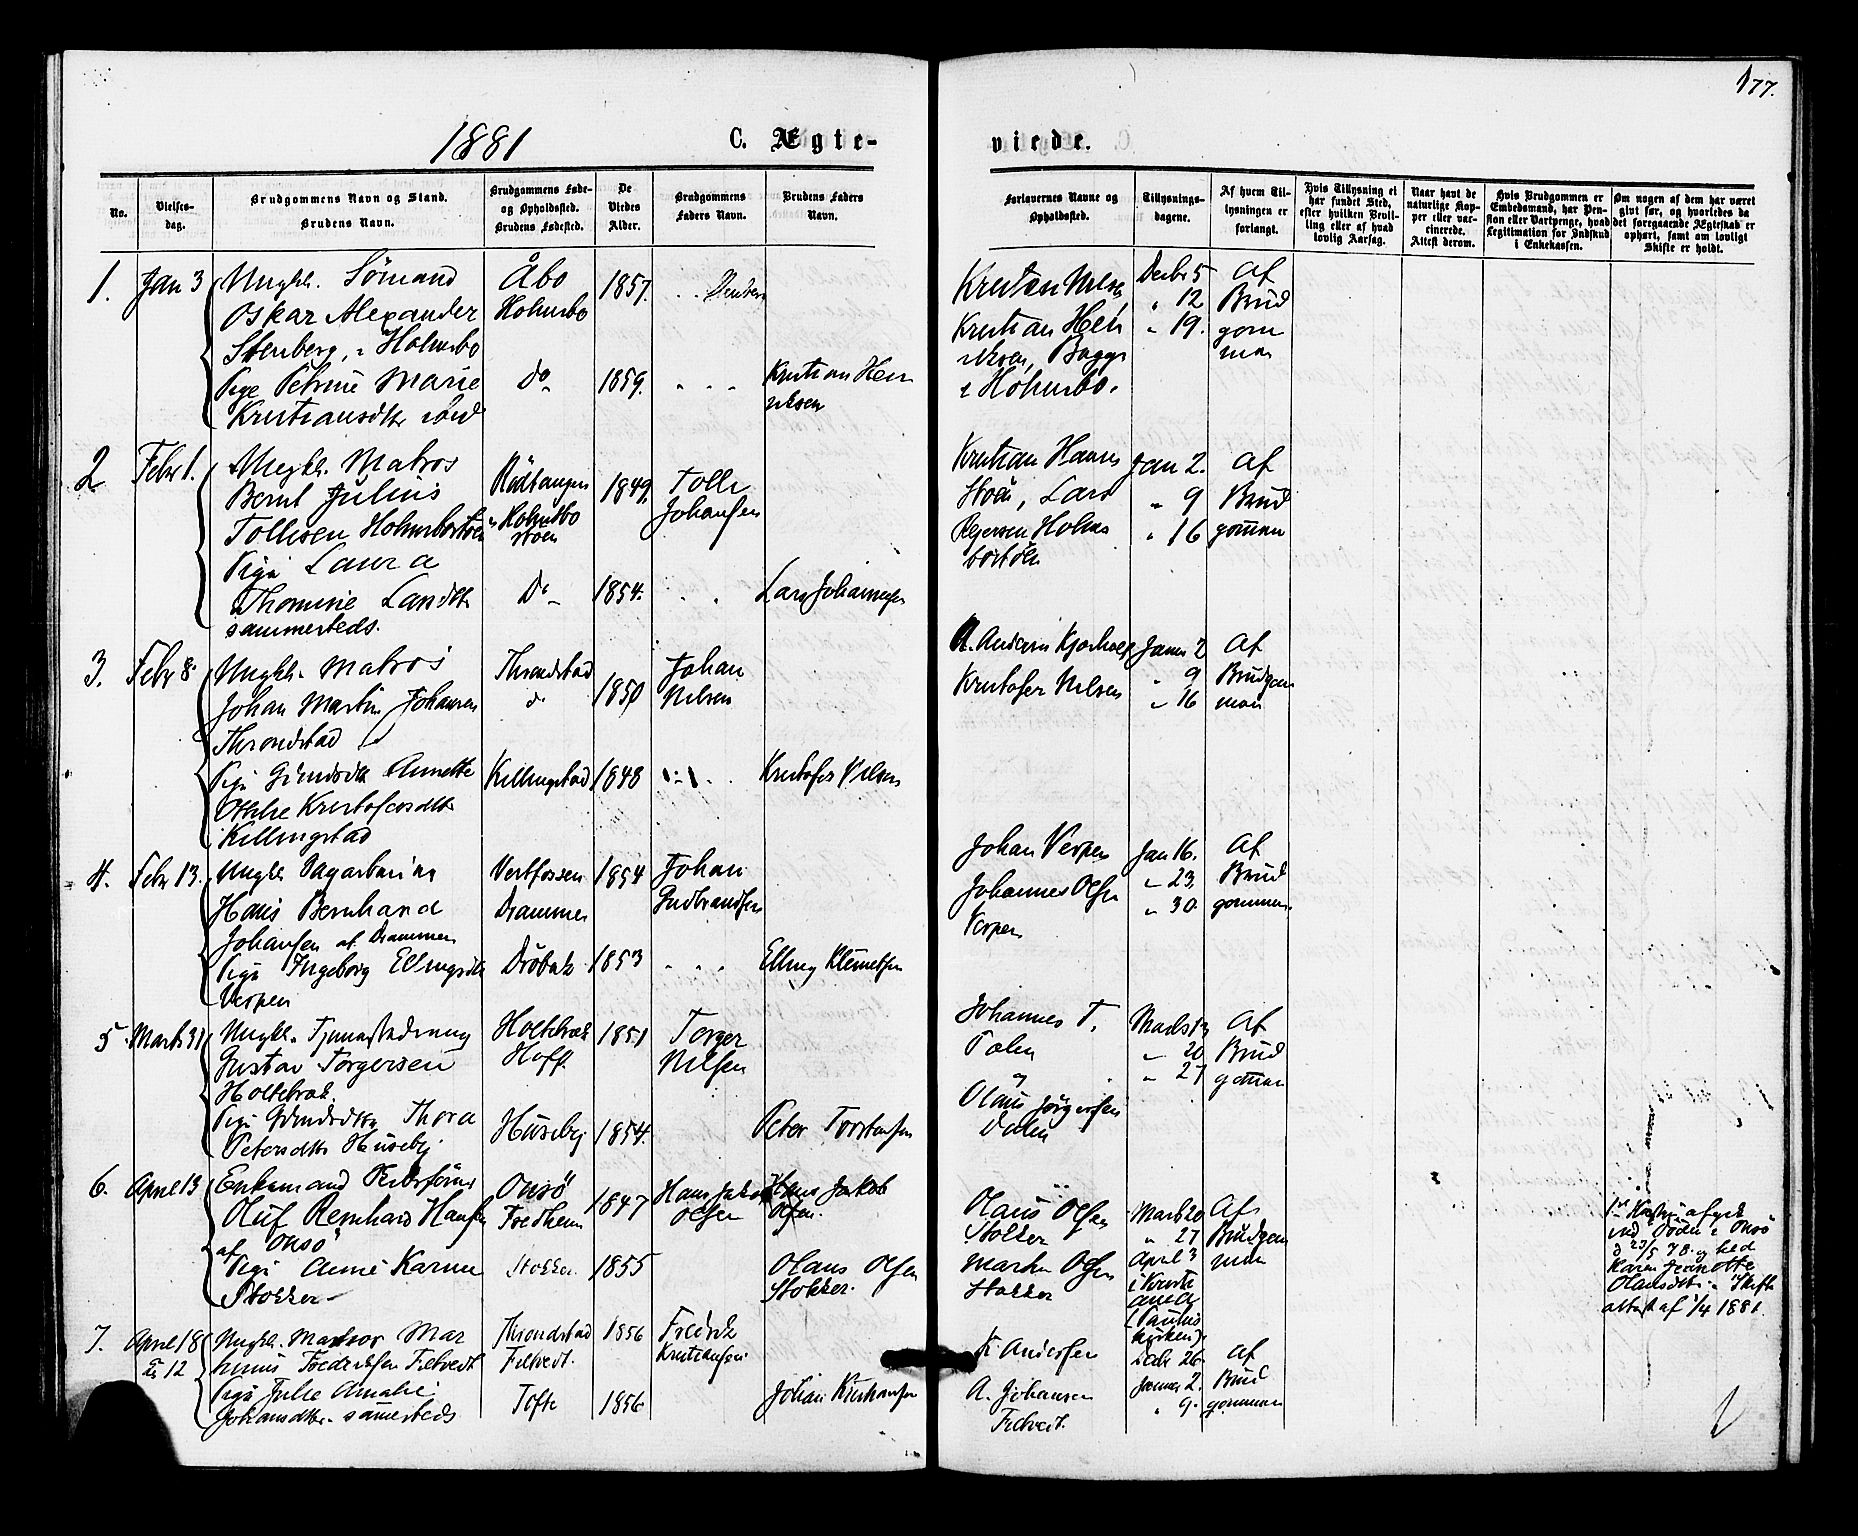 177.
1881
C. Ægte-
viede.
No.
Vielses-
dag.
Brudgommens Navn og Stand.
Brudens Navn.
Brudgommens Føde-
og Opholdsted.
Brudens Fødested.
De
Viedes
Alder.
Brudgommens
Faders Navn.
Brudens Faders
Navn.
Forlovernes Navne og
Opholdsted.
Tillysnings-
dagene.
Af hvem Til-
lysningen er
forlangt.
Hvis Tillysning ei
har fundet Sted,
efter hvilken Bevil-
ling eller af hvad
lovlig Aarsag.
Naar havt de
naturlige Kop-
per eller var-
cinerede.
Attest derom.
Hvis Brudgommen er
Embedsmand, har Pen-
sion eller Vartpenge, hvad
Legitimation for Indskud
i Enkekassen.
Om nogen af dem har været
givt før, og hvorledes da
det foregaaende Ægteskab er
ophørt, samt om lovligt
Skifte er holdt.
1. Jan 3
Ungkl. Sømand
Oskar Alexander
Stenberg, i Holmsbo
Pige Petrine Marie
Kristiansdtr ibid
Åbo
Holmsbo
Do
1857.
1859.
Kristian Hen
riksen
Kristen Nilsen
Kristian Hen
riksen, Bagge
i Holmsbo.
Decbr 5
" 12
" 19.
Af
Brud
gom
man
2 Febr 1.
Ungkl. Matros
Bernt Julius
Tollesen Holmsbostøen
Pige Laura
Thomine Larsdtr
sammesteds.
Rødtangen
Holmsbo
støen
Do
1849.
1854.
Tolle
Johansen
Lars Johannesen
Kristian Hans
Støen, Lars
Holms
bostøen
Jan 2.
" 9
" 16
Af
Brud
gomman
3. Febr 8.
Ungkl. Matros
Johan Martin Johansen
Throndstad
Pige Gaardsdtr Annette
Othilie Kristofersdtr
Killingstad
Throndstad
do
Killingstad
1850
1848
Johan
Nilsen
Kristofer Nilsen
A. Andersen
Kristofer Nilsen
Januar 2
" 9
" 16
Af
Brudgom
man
4. Febr 13.
Ungkl. Dagarbeider
Hans Bernhard
Johansen af Drammen
Pige Ingeborg Ellingsdtr
Verpen
Vestfossen
Drammen
Drøbak
1854
1853
Johan
Gudbrandsen
Elling Klemetsen
Johan Verpen
Johannes Olsen
Verpen
Jan 16.
" 23.
" 30
Af
Brud
gomman
5 Marts 31
Ungkl. Tjenestedreng
Gustav Torgersen
Holtebræk.
Pige Gaardsdtr Thora
Petersdtr Huseby
Holtebræk
Hoff.
Huseby
1851
1854.
Torger
Nilsen
Peter Torstensen
Johannes T.
Tolen
og
Olaus Jørgensen
Dalen
Marts 13
" 20
" 27
Af
Brud
gomman
6. April 13
Enkemand
Oluf Bernhard Hansen
af Onsø
Pige Anne Karine
Stokker
Onsø
Stokker
1847
1855
Hans Jakob
Olsen
Hans Jakob
Olsen.
Olaus Olsen
Stokker.
Olaus Olsen
Stokker
Martin Olsen
Stokker
Marts 20
" 27
April 3
i Kristi
ania
(Paulus
kirken).
Af
Brudgom
man
1ste Hustru afgik
ved Døden i Onsø
d 23/5 78. og hed
Karen Jeanette
Olausdtr. Skifte
attest af 1/4 1881
7. April 18
Kl 12
Ungkl. Matros Mar
tinius Fredriksen Filtvedt
Pige Julie Amalie
Johansdtr. sammesteds
Throndstad
Filtvedt.
Tofte
1856
1856
Fredrik
Kristiansen
Johan Kristiansen
K. Andersen
A. Johansen
Filtvedt.
Decbr 26.
Januar 2.
" 9.
Af
Brud
gomman